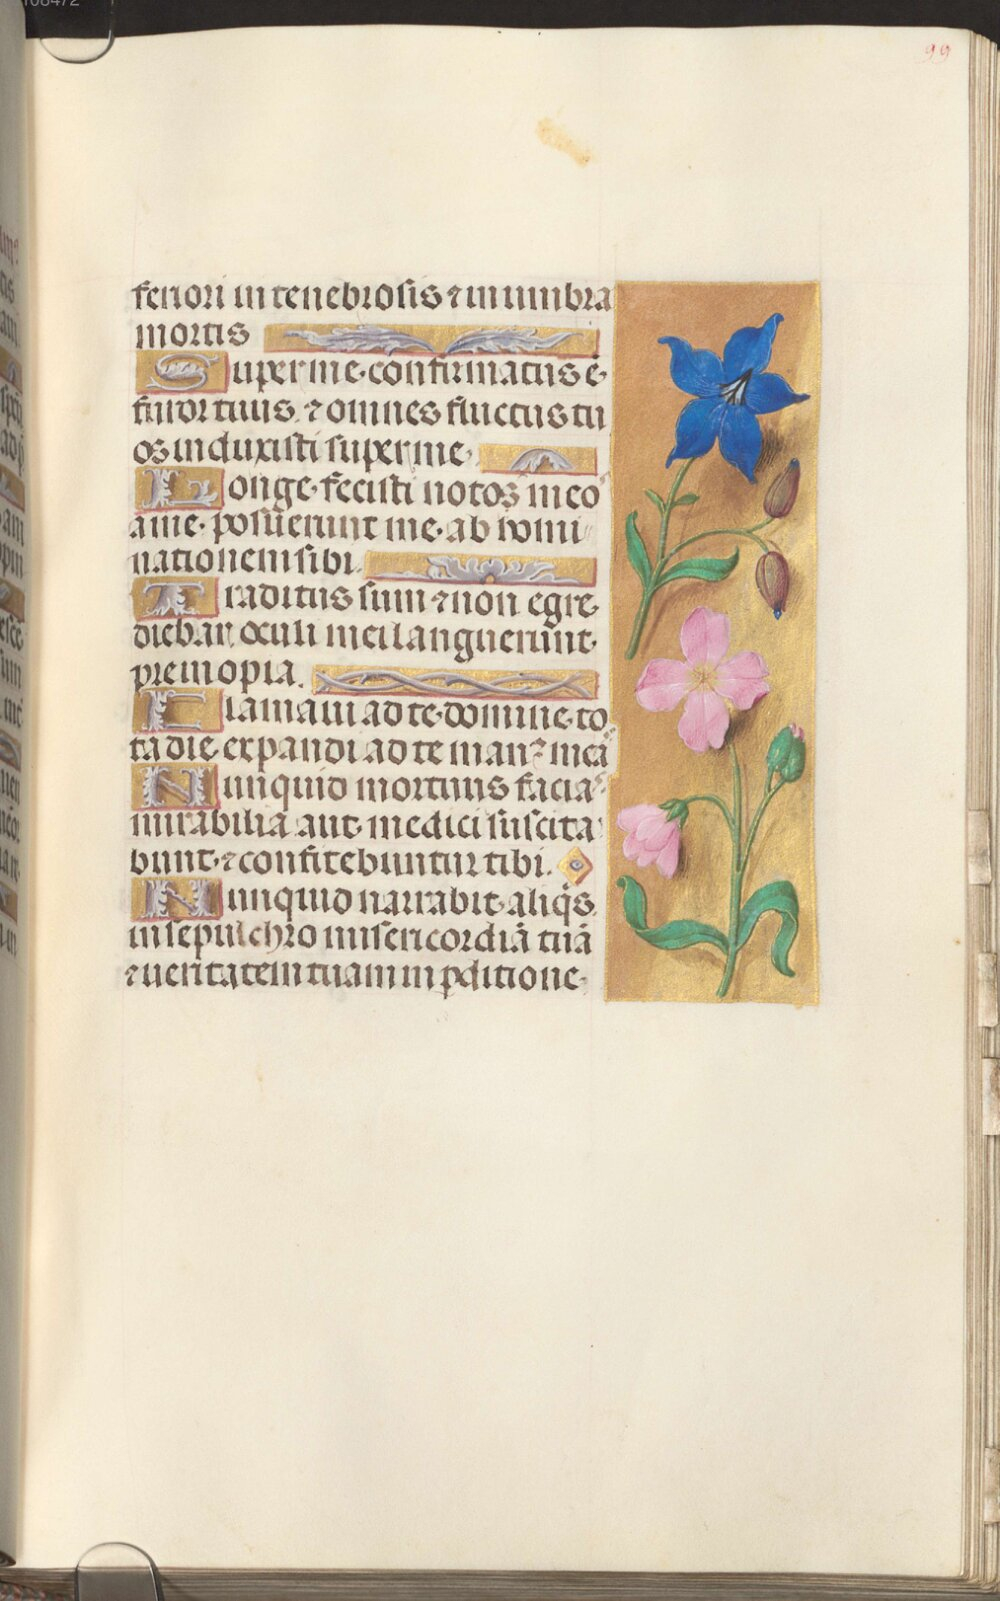 108472
99
feriori in tenebrosis ⁊ in umbra
mortis
Super me confirmatus ē
furor tuus. ⁊ omnes fluctus tu
os induxisti super me.
Longe fecisti notos meo
a me posuerunt me ab homi
nationem sibi.
Traditus sum ⁊ non egre
diebar oculi mei languerunt
pre inopia.
Clamaui ad te domine to
ta die expandi ad te man⁹ meā
Nunquid mortuus facia
mirabilia aut medici suscita
bunt ⁊ confitebuntur tibi.
Nunquid narrabit aliq̄s
in sepulchro misericordiā tuā
⁊ ueritatem tuam in pditione